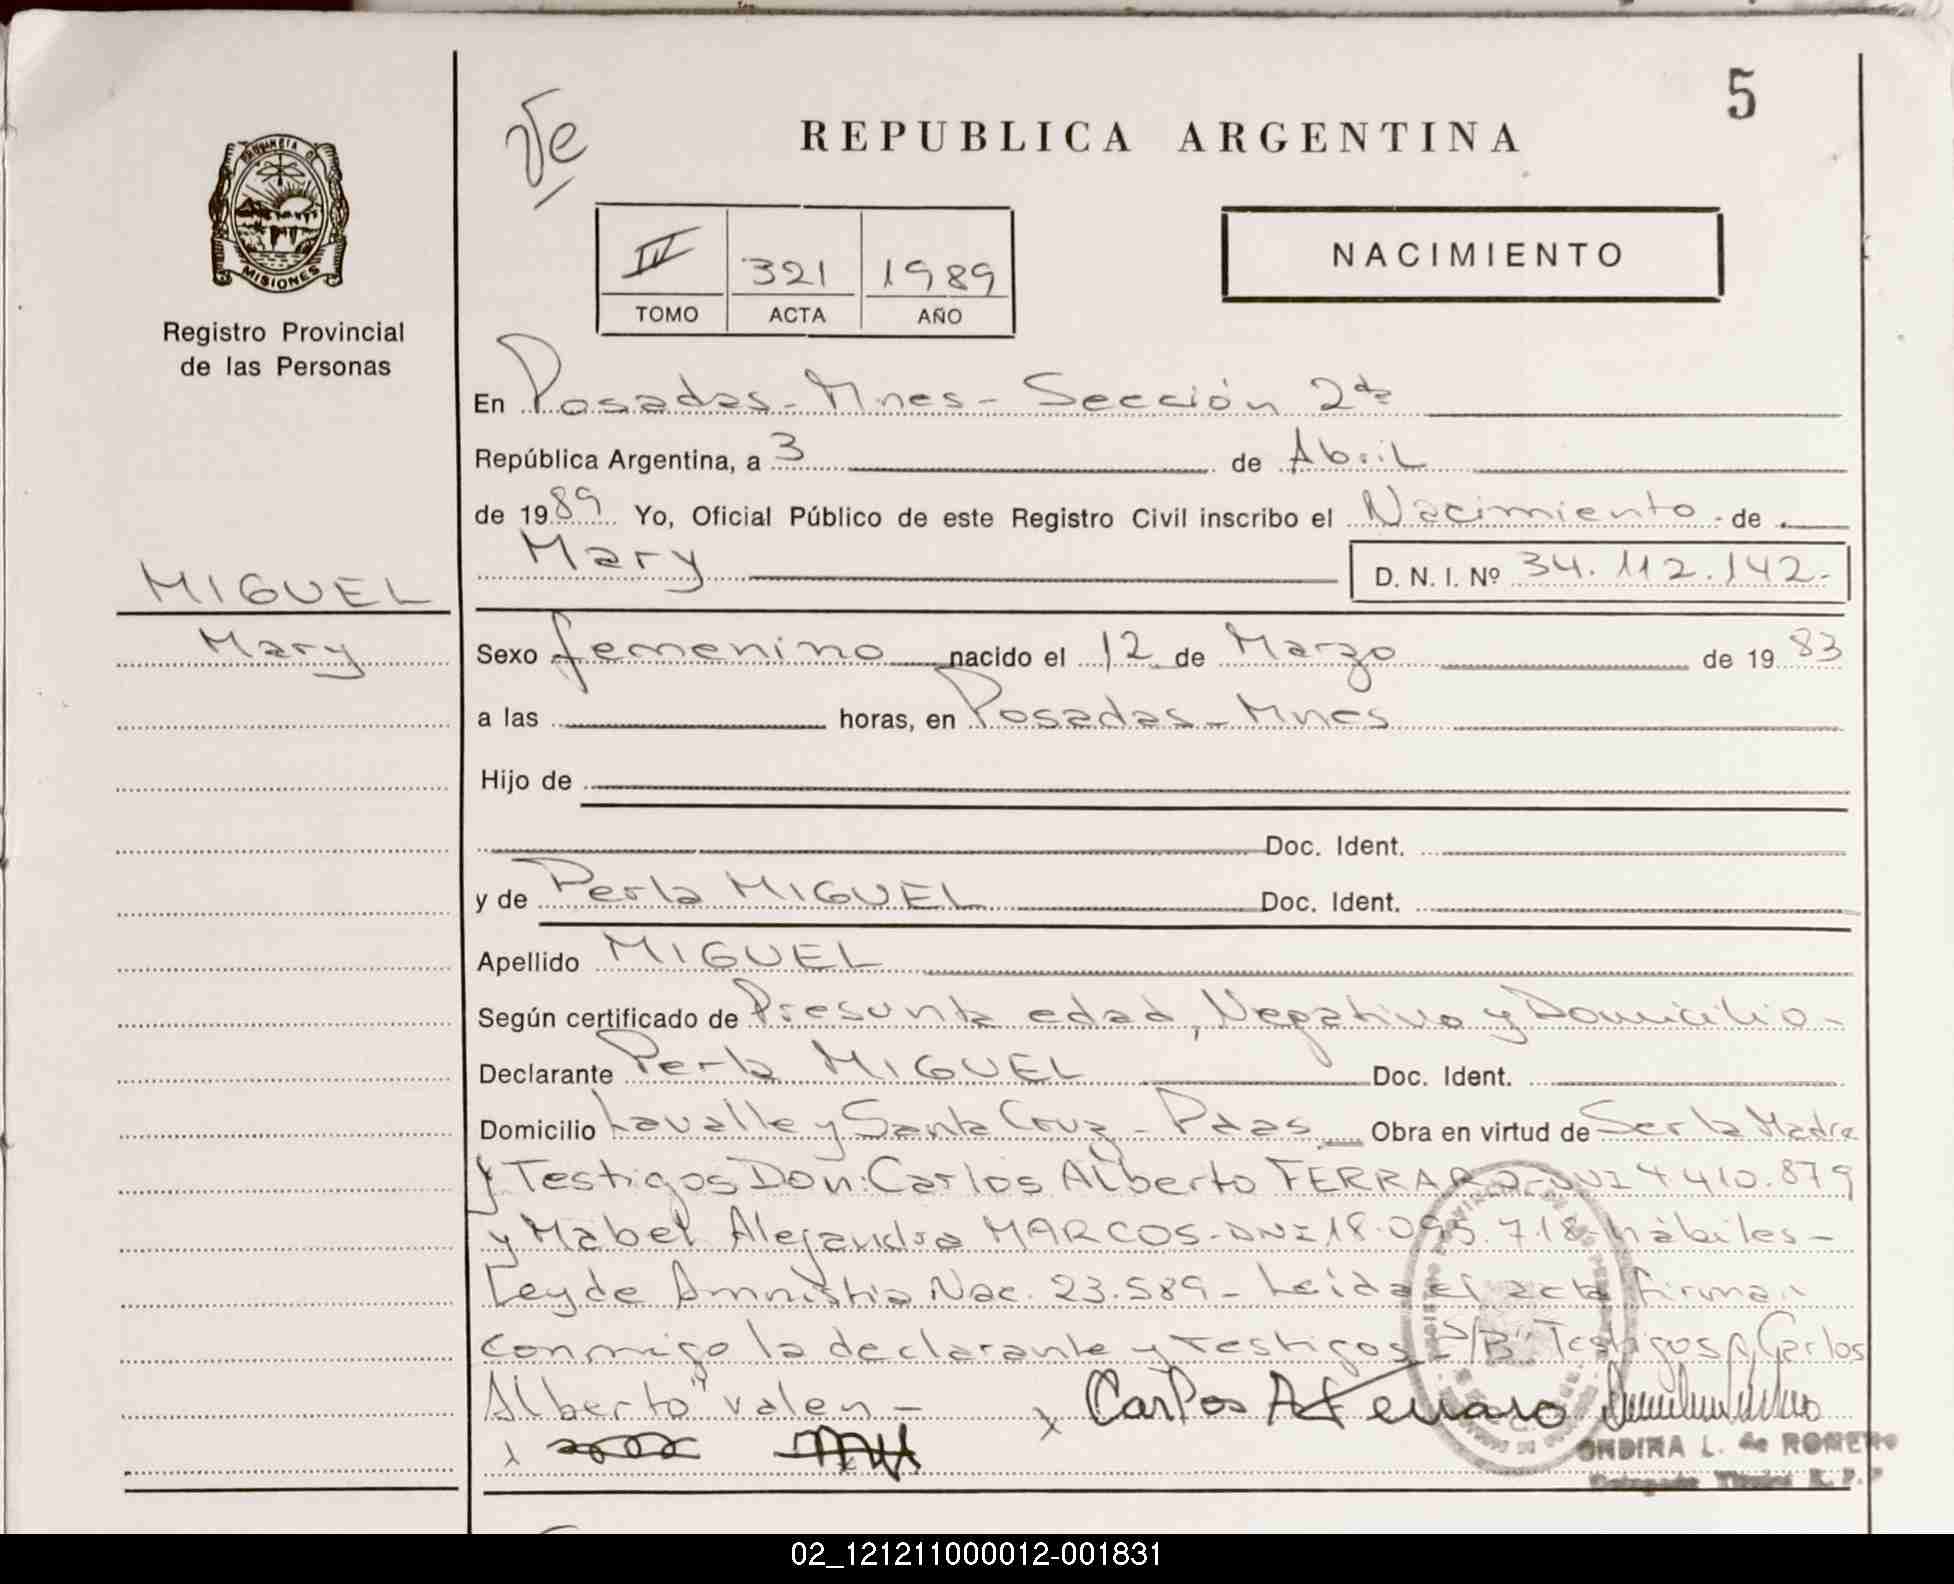 5
REPUBLICA ARGENTINA
PROVINCIA DE
MISIONES
Registro Provincial
de las Personas
IV 321 1989
TOMO ACTA AÑO
NACIMIENTO
En Posadas - Mnes - Sección 2da
República Argentina, a 3 de Abril
de 1989 Yo, Oficial Público de este Registro Civil inscribo el Nacimiento de
Mary D. N. I. Nº 34.112.142.-
MIGUEL
Mary
Sexo femenino nacido el 12 de Marzo de 1983
a las horas, en Posadas - Mnes
Hijo de
Doc. Ident.
y de Perla MIGUEL Doc. Ident.
Apellido MIGUEL
Según certificado de Presunta edad, Negativo y Domicilio -
Declarante Perla MIGUEL Doc. Ident.
Domicilio Lavalle y Santa Cruz - Pdas. Obra en virtud de Ser la Madre
y Testigos Don: Carlos Alberto FERRARO - DNI 4 410.879
y Mabel Alejandra MARCOS - DNI 18.095.718 hábiles -
Ley de Amnistia Nac. 23.589 - Leída el acta firman
conmigo la declarante y testigos - S/B "Testigos, Carlos
Alberto" valen -
x Carlos A Ferraro
x
ONDINA L. de ROMERO
02_121211000012-001831